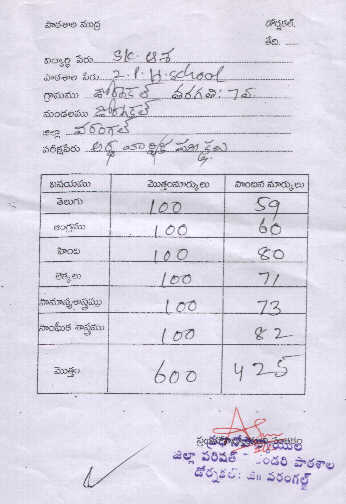 పాఠశాల ముద్ర డోర్నకల్.
తేది. ......
విద్యార్థి పేరు SK. ఆశ
పాఠశాల పేరు Z.P.H.School
గ్రామము డోర్నకల్ తరగతి: 7వ
మండలము డోర్నకల్
జిల్లా వరంగల్
పరీక్షపేరు అర్థ వార్షిక పరీక్షలు
విషయము మొత్తంమార్కులు పొందిన మార్కులు
తెలుగు 100 59
ఆంగ్లము 100 60
హింది 100 80
లెక్కలు 100 71
సామాన్యశాస్త్రము 100 73
సాంఘీక శాస్త్రము 100 82
మొత్తం 600 425
జిల్లా పరిషత్ పాఠశాల
డోర్నకల్: జిll వరంగల్